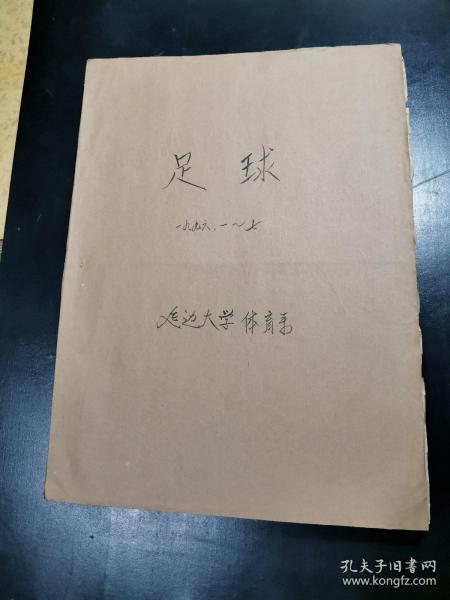 足球
一九九六.一～七
延边大学体育系
孔夫子旧书网
www.kongfz.com